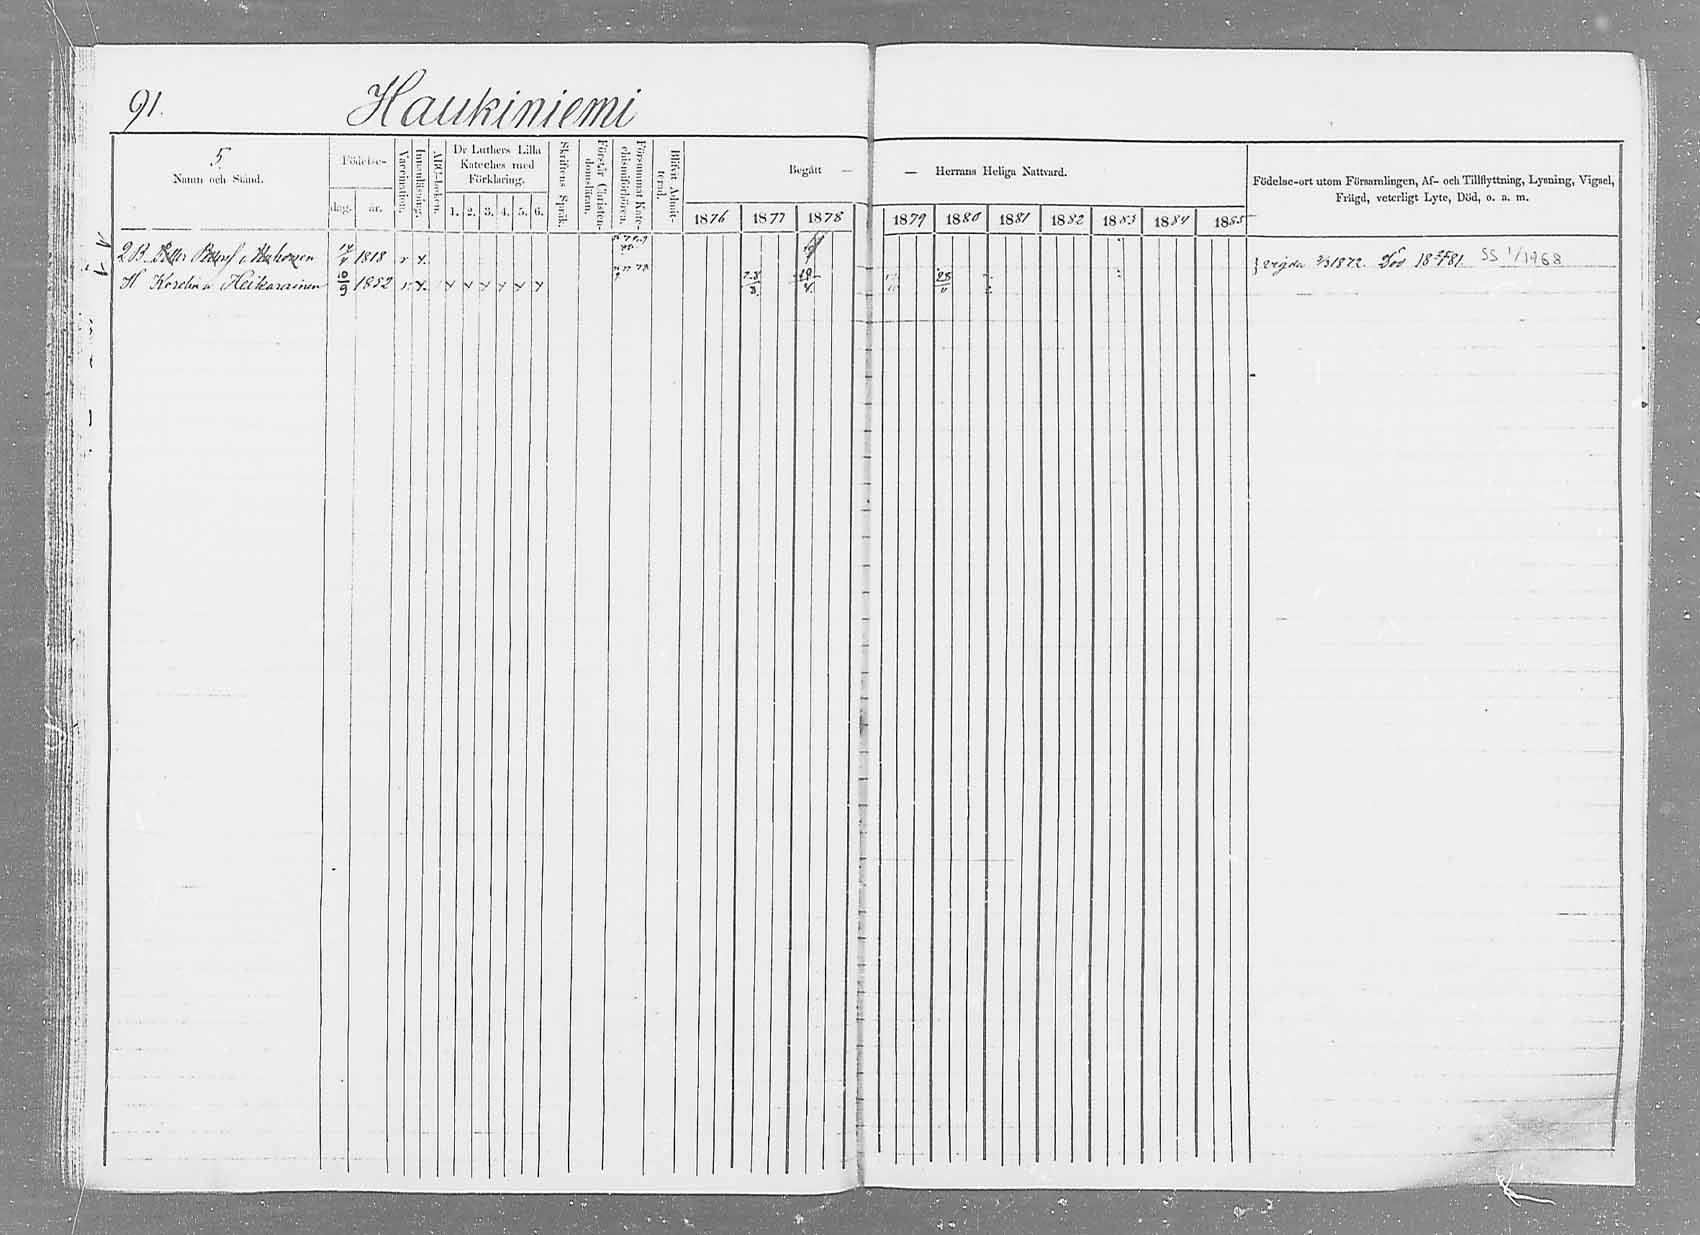 91.
Haukiniemi
5
Namn och Stånd.
Födelse-
dag.
år.
Vaccination.
Innanläsning.
ABC-boken.
Dr Luthers Lilla
Kateches med
Förklaring.
1. 2. 3. 4. 5. 6.
Skriftens Språk.
Förstår Christen-
domsläran.
Försummat Kate-
chismiförhören.
Blifvit Admit-
terad.
Begått —
— Herrans Heliga Nattvard.
1876 1877 1878 1879 1880 1881 1882 1883 1884 1885
Födelse-ort utom Församlingen, Af- och Tillflyttning, Lysning, Vigsel,
Frägd, veterligt Lyte, Död, o. a. m.
2 B. Petter 1818 v. x. vigda 1872. Död 1881. SS 1/1968
H Heikarainen 10/9 1852 v. x. x x x x x x 28/11